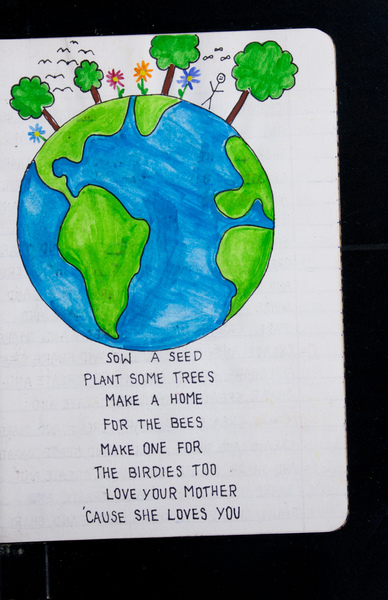 SOW A SEED
PLANT SOME TREES
MAKE A HOME
FOR THE BEES
MAKE ONE FOR
THE BIRDIES TOO
LOVE YOUR MOTHER
'CAUSE SHE LOVES YOU